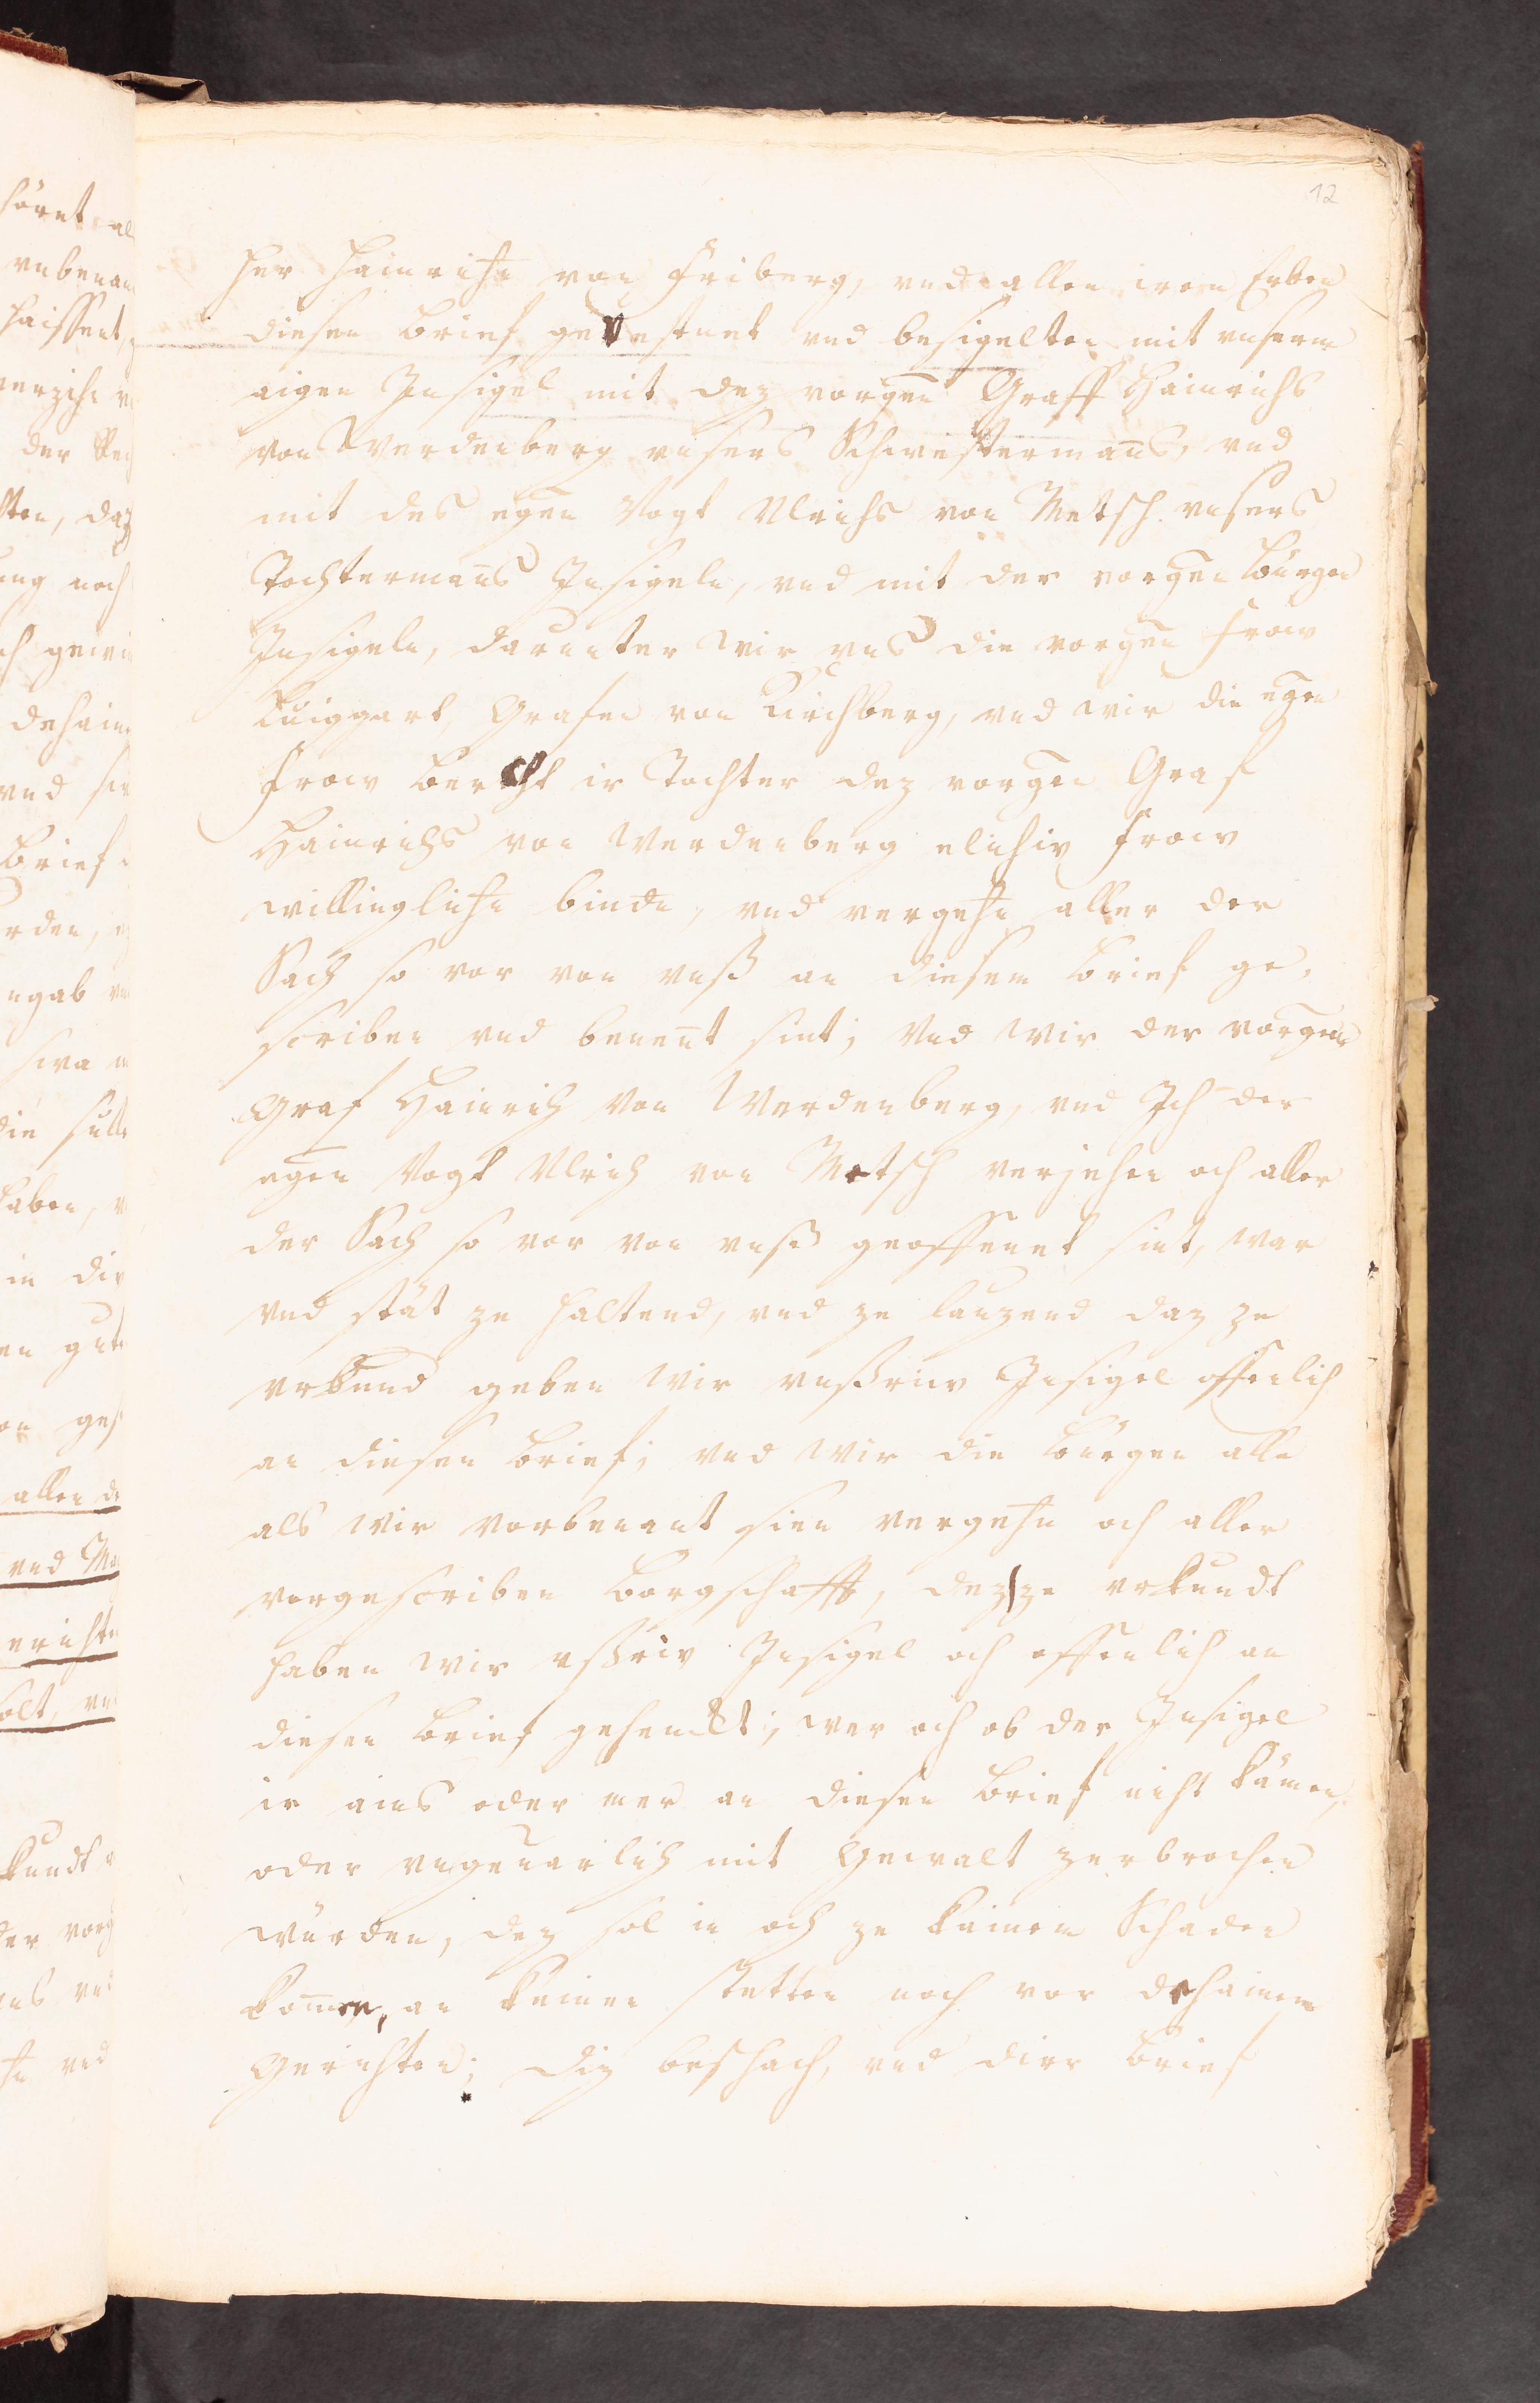 12
her Hainrichē von Friberg, vnd allen iren Erben
diesen Brief gevestnet vnd besigelten mit vnserm
aigen Insigel mit dez vorgen̄ Graff Hainrichs
von Werdenberg vnsers Schwestermans, vnd
mit des egen̄ Vogt Ulrichs von Metsch vnsers
Tochtermans Insigeln, vnd mit der vorgen̄ Bürgen
Insigeln, darunter wir vns die vorgen̄ Frow
Luiggart, Grafen von Kirchberg, vnd wir die egen̄
Frow Bercht ir Tochter dez vorgen̄ Graf
Hainrichs von Werdenberg elichiv Frow
willinglichē binde, vnd vergehē aller der
Sach so vor von vnß an diesem Brief ge,
scriben vnd benen̄t sint; Vnd wir der vorgen̄
Graf Hainrich von Werdenberg, vnd Ich der
egen̄ Vogt Ulrich von Metsch verjehen och aller
der Sach so vor von vnß geoffenet sint, war
vnd stät ze haltend, vnd ze lauzend daz ze
vrkund geben wir vnßriv Insigel offenlich
an diesen Brief; vnd wir die Bürgen alle
als wir vorbenant sien vergehē och aller
vorgescriben Borgschafft, dez ze vrkundt
haben wir vßriv Insigel och offenlich an
diesen Brief gehenckt; wer och ob der Insigel
ir ains oder mer an diesen Brief nicht kämen,
oder vngeuarlich mit Gewalt zerbrochen
würden, dez sol in och ze kainem Schaden
kom̄en, an keinen stetten noch vor dehainem
Gerichten; Diz beschach, vnd dirr Brief